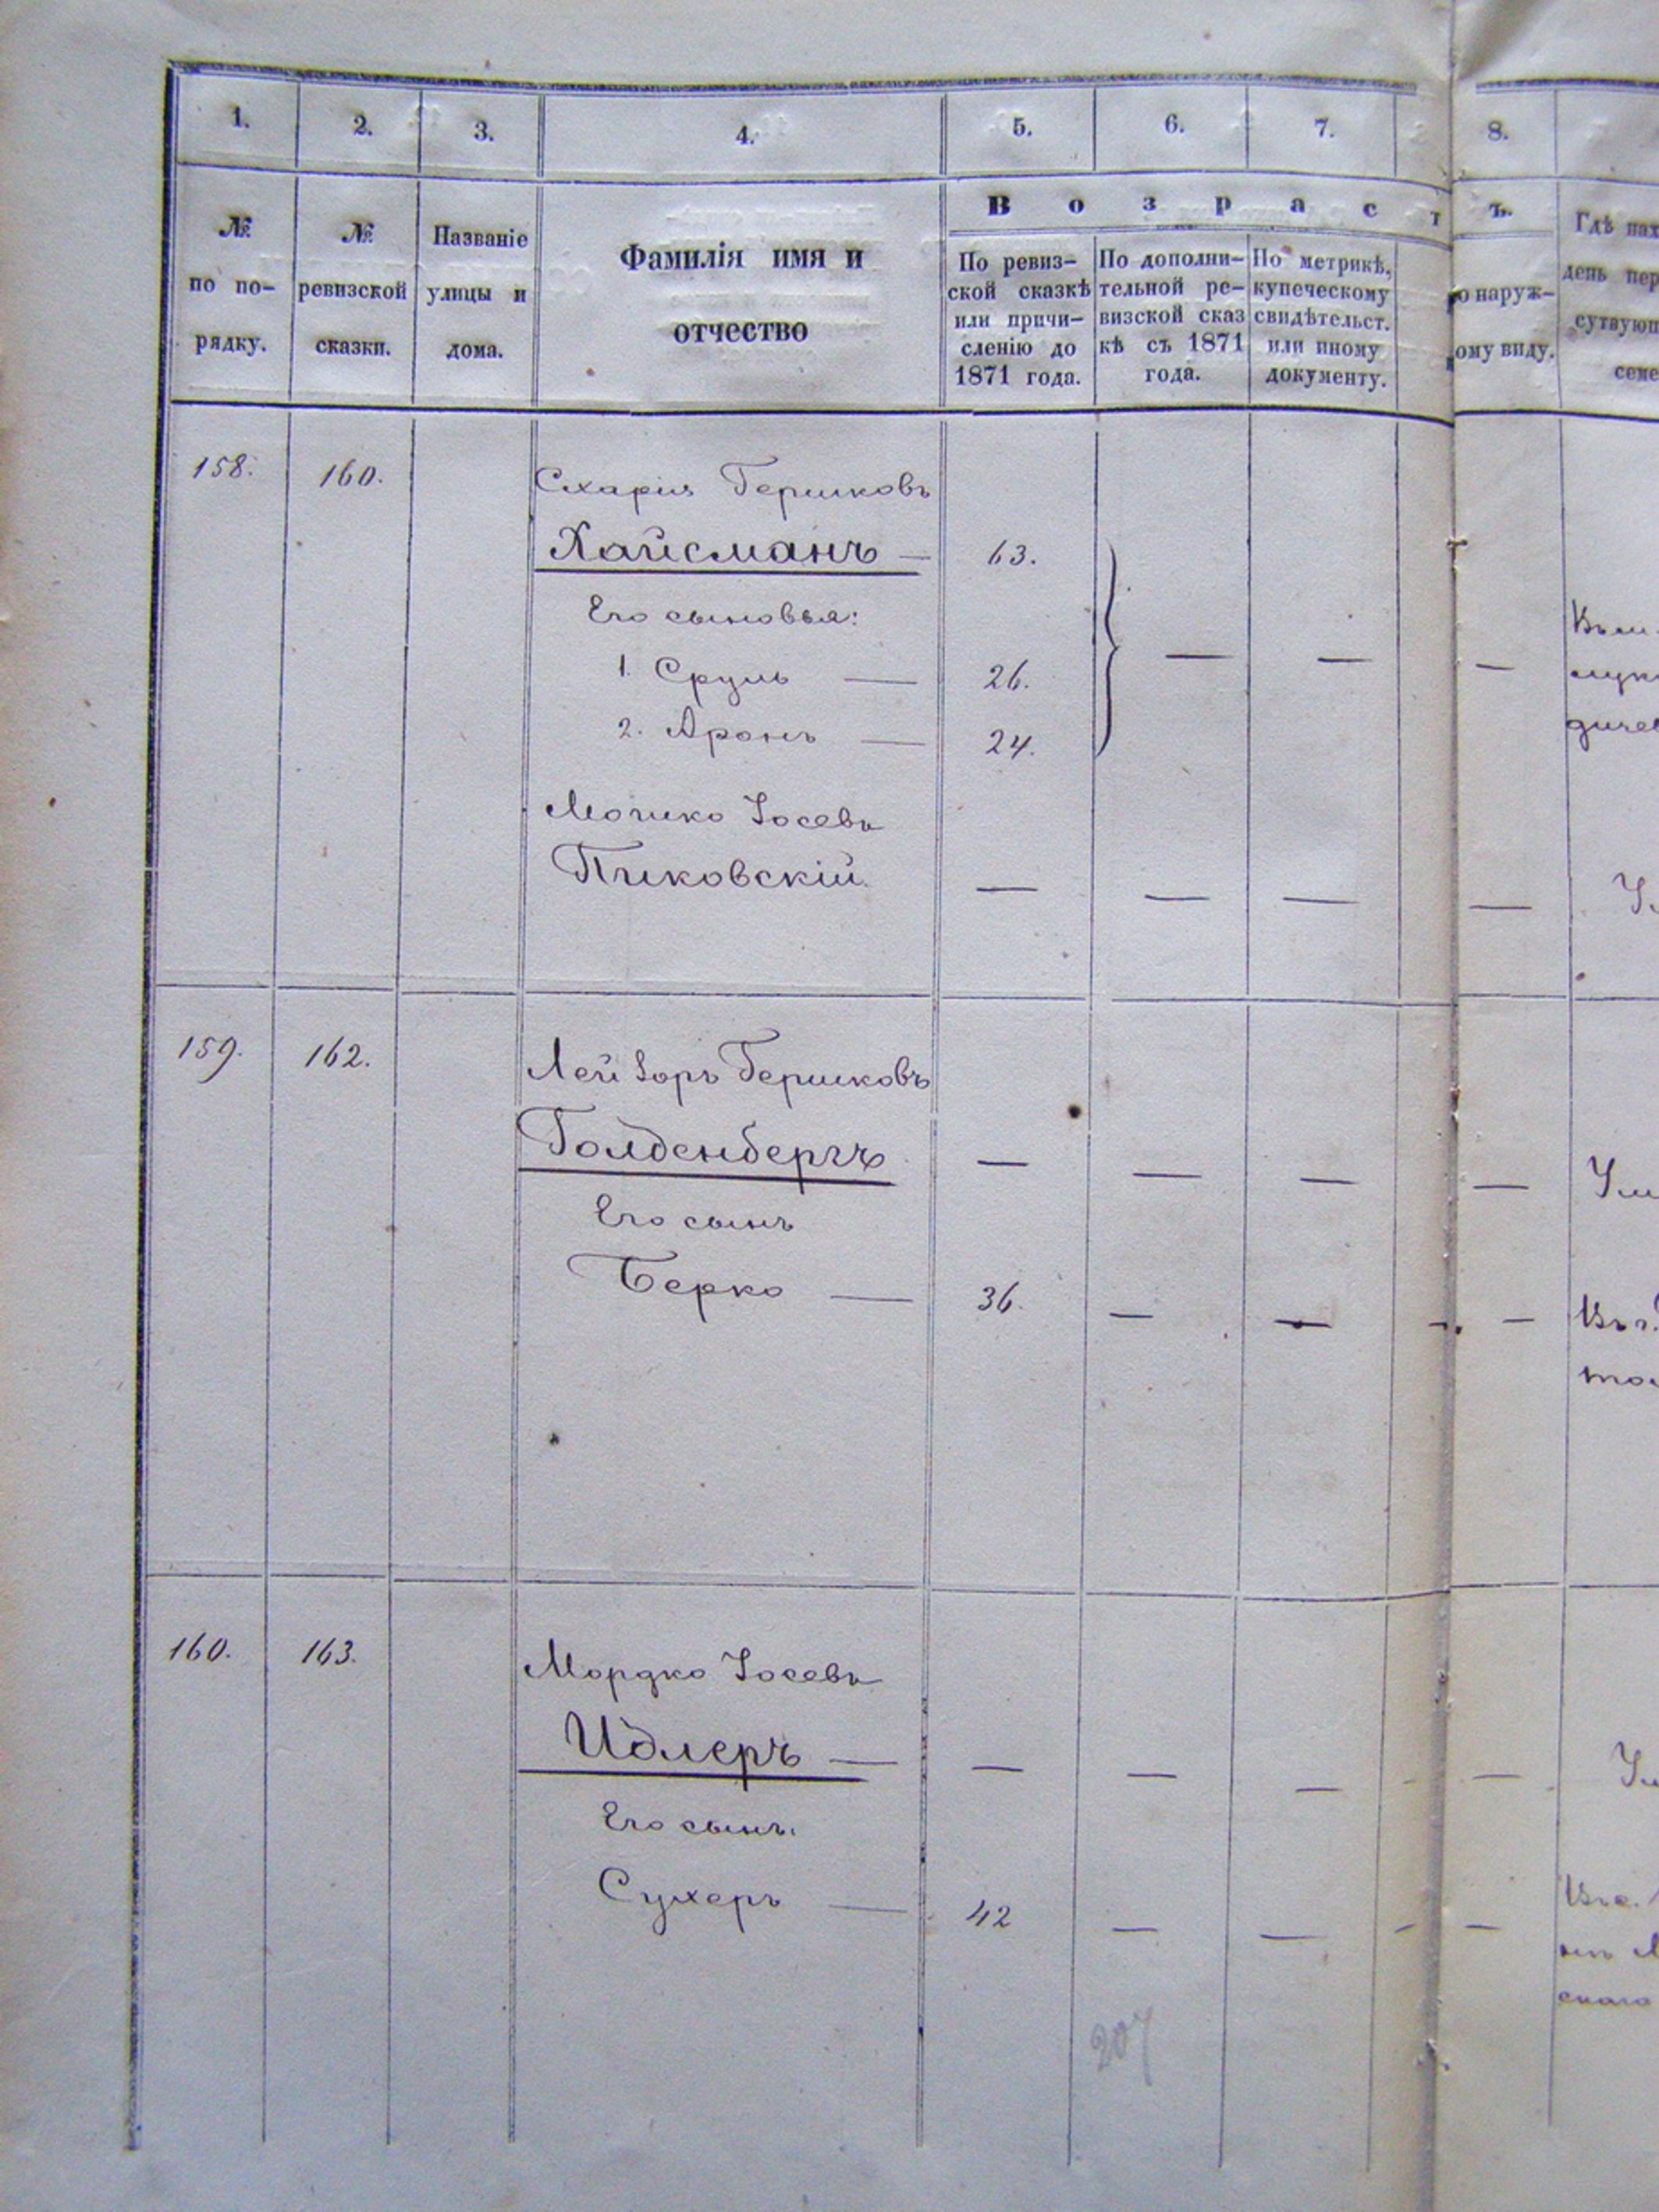 1. 2. 3. 4. 5. 6. 7. 8.
№ по по-рядку.
№ ревизской сказки.
Названіе улицы и дома.
Фамилія имя и
отчество
В о з р а с т ъ.
По ревиз-
ской сказкѣ
или причи-
сленію до
1871 года.
По дополни-
тельной ре-
визской сказ
кѣ съ 1871
года.
По метрикѣ,
купеческому
свидѣтельст.
или иному
документу.
о наруж-
ому виду.
Гдѣ нах
день пер
сутвую
семе
158. 160. Схарія Гершковъ
Хайсманъ — 63.
Его сыновья:
1. Сруль — 26. — — —
2. Аронъ — 24.
Мошко Іосевъ
Пиковскій. — — — —
159. 162. Лейзоръ Гершковъ
Голденбергъ — — — —
Его сынъ
Берко — 36. — — — —
160. 163. Мордко Іосевъ
Идлеръ — — — — —
Его сынъ.
Сухеръ — 42 — — — —
207